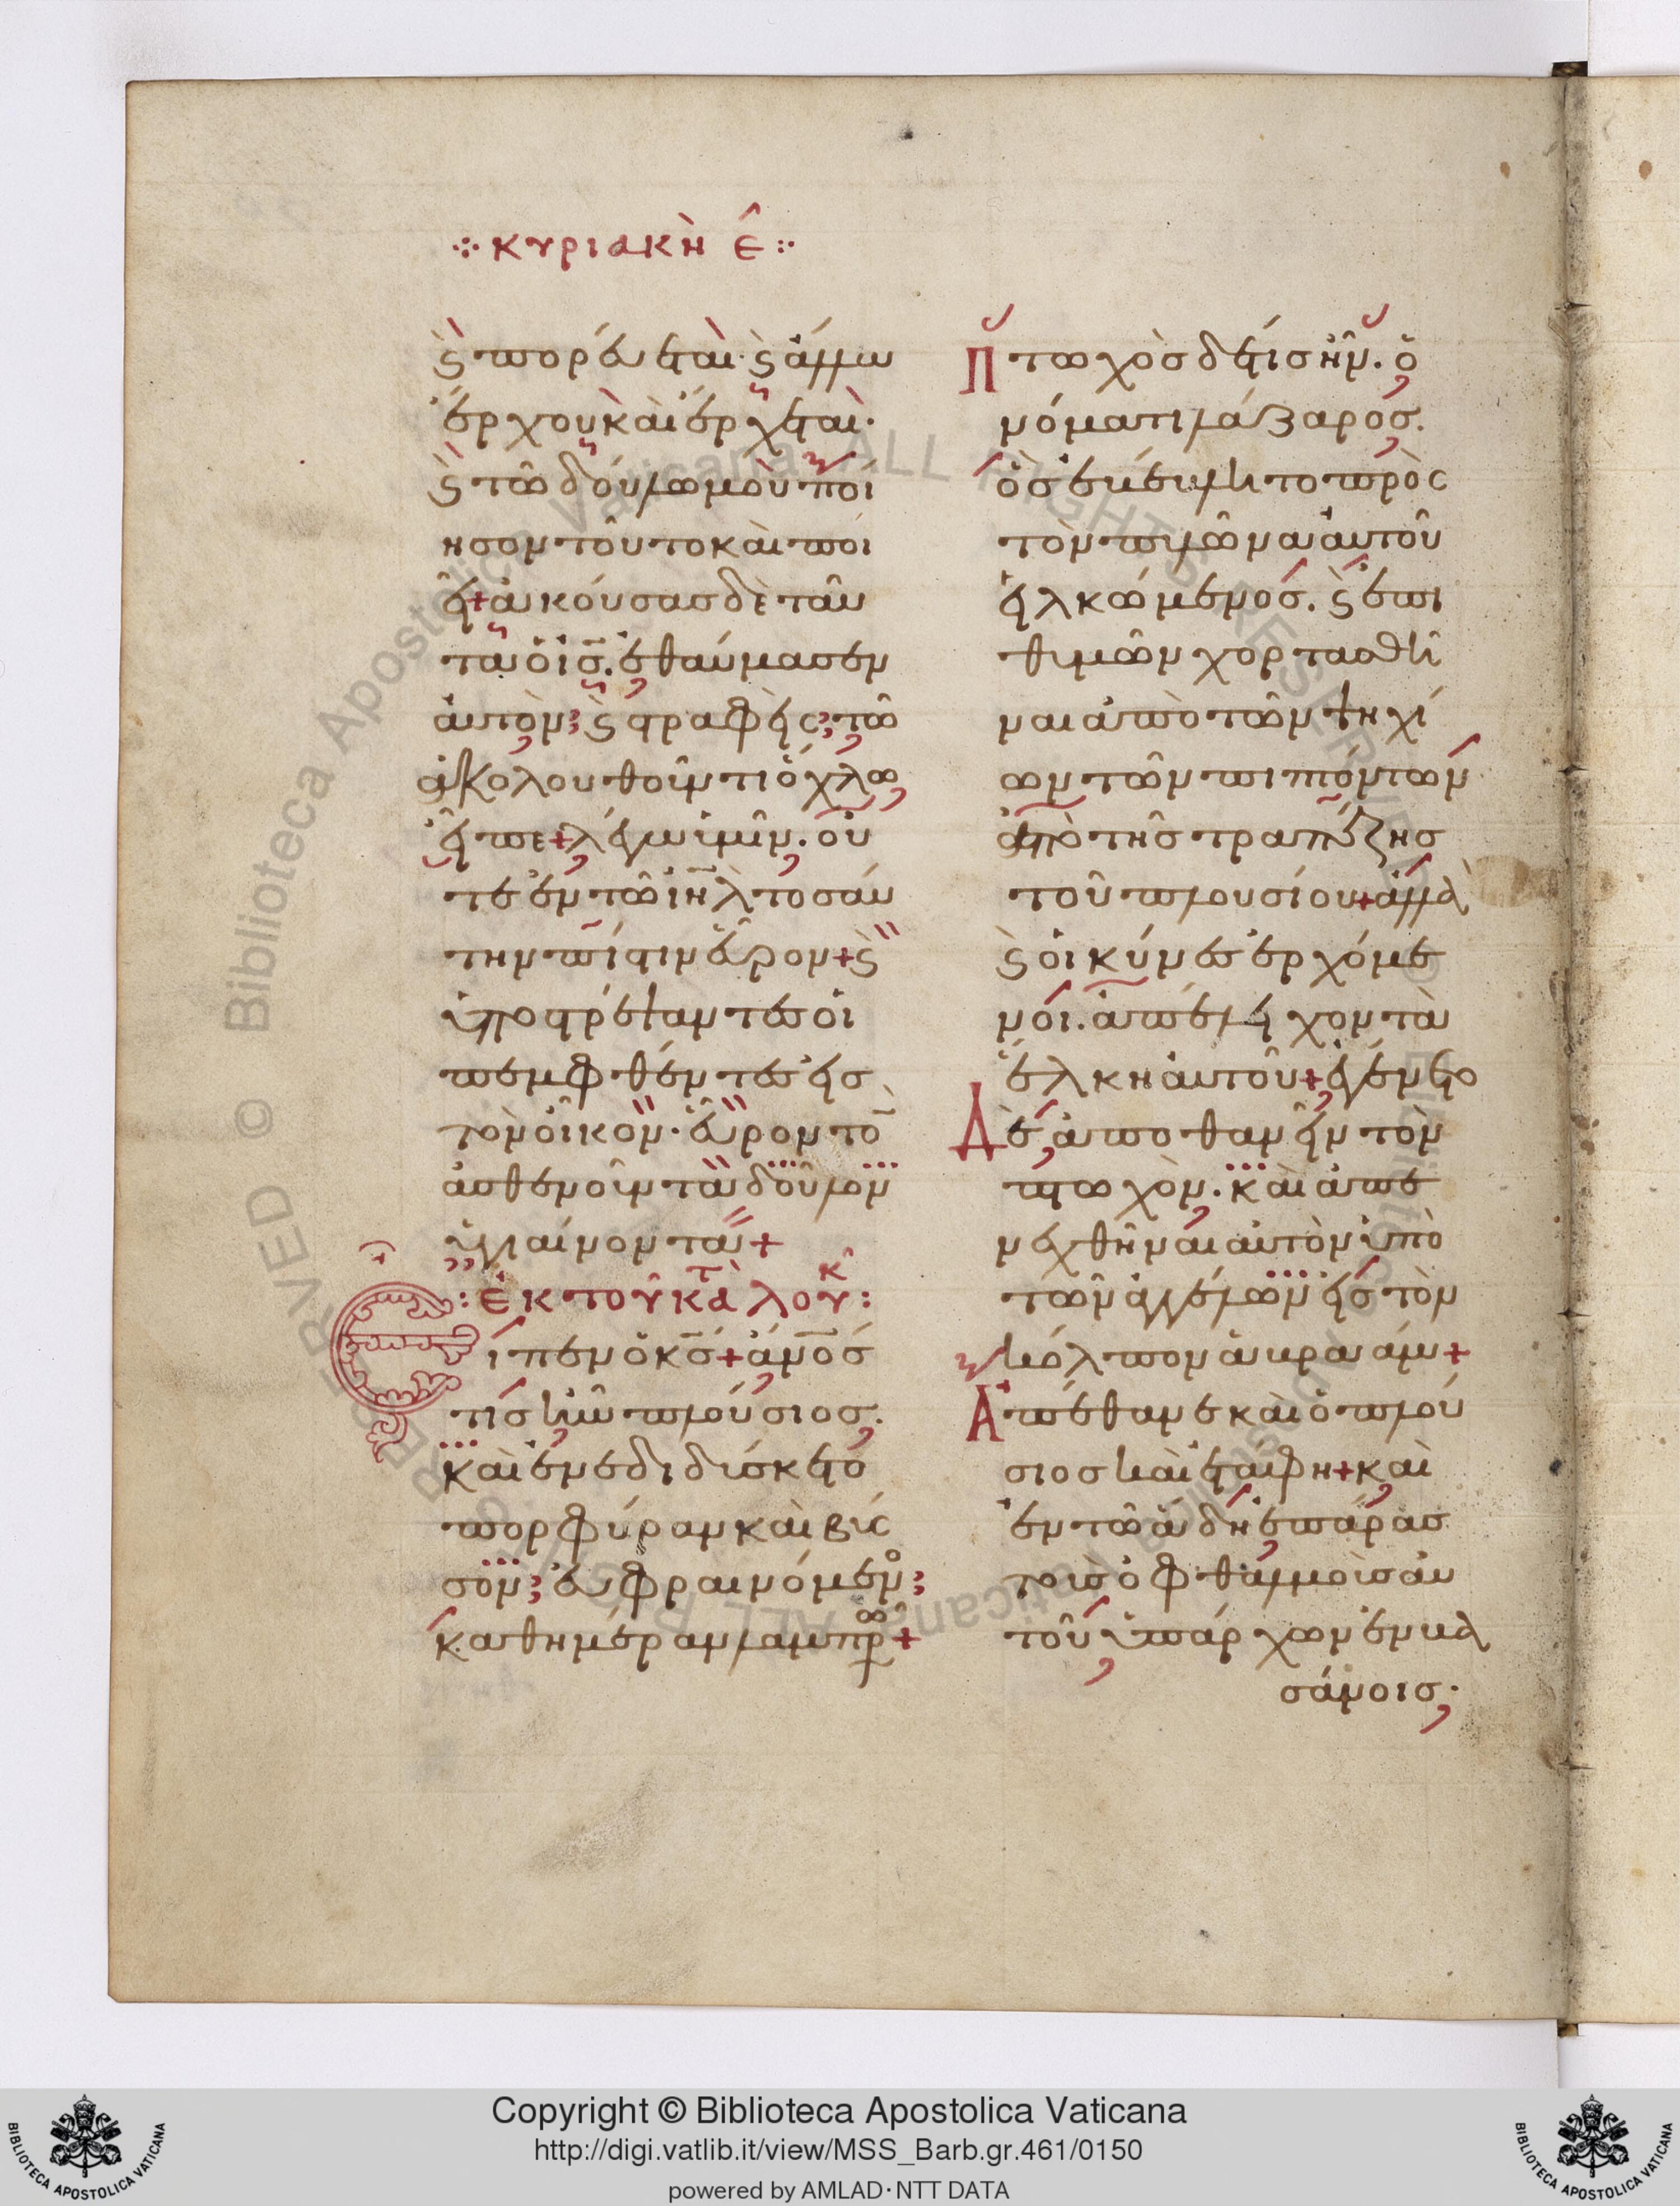 κυριακὴ ε̂
ϛ πορεύεται· ϛ ἄλλω
ἔρχου καὶ ἔρχεται·
ϛ τῶ δούλω μου ποί
ησον τοῦτο καὶ ποι
εῖ + ἀκούσας δὲ ταῦ
τα ὁ ις̅. ἐθαύμασεν
αὐτὸν; ϛ στραφεὶς; τῶ
ἀκολουθοῦντι ὄχλω
εἶπε + λέγω ὑμῖν. οὔ
τε ἐν τῶ ιη̅λ τοσαύ
την πίστιν εὗρον + ϛ
ὑποστρέψαντες οἱ
πεμφθέντες εἰς
τὸν οἶκον· εὗρον το̅
ἀσθενοῦντα δοῦλον
ὑγιαίνοντα +
: ἐκ τοῦ κατὰ λουκ :
Εἶπεν ὁ κς̅ + ἀνος̅
τίς ἦν πλούσιος.
καὶ ἐνεδιδύσκετο
πορφύραν καὶ βύς
σον; εὐφραινόμεν;
καθημέραν λαμπρ +
Πτωχὸς δέ τις ἦν. ὀ
νόματι λάζαρος.
ὃς ἐβέβλητο πρὸς
τὸν πυλῶνα αὐτοῦ
εἱλκωμένος. ϛ ἐπι
θυμῶν χορτασθῆ
ναι ἀπὸ τῶν ψηχί
ων τῶν πιπτόντων
ἀπὸ τῆς τραπέζης
τοῦ πλουσίου + ἀλλὰ
ϛ οἱ κύνες ἐρχόμε
νοι. ἀπέλειχον τὰ
ἕλκη αὐτοῦ + ἐγένετο
Δὲ ἀποθανεῖν τὸν
πτωχὸν. καὶ ἀπε
νεχθῆναι αὐτὸν ὑπὸ
τῶν ἀγγέλων εἰς τὸν
κόλπον ἀβρααάμ +
Ἀπέθανε καὶ ὁ πλού
σιος καὶ ἐτάφη + καὶ
ἐν τῶ ἅδη ἐπάρας
τοὺς ὀφθαλμοὺς αὐ
τοῦ ὑπάρχων ἐν βα
σάνοις·
Copyright © Biblioteca Apostolica Vaticana
http://digi.vatlib.it/view/MSS_Barb.gr.461/0150
powered by AMLAD·NTT DATA